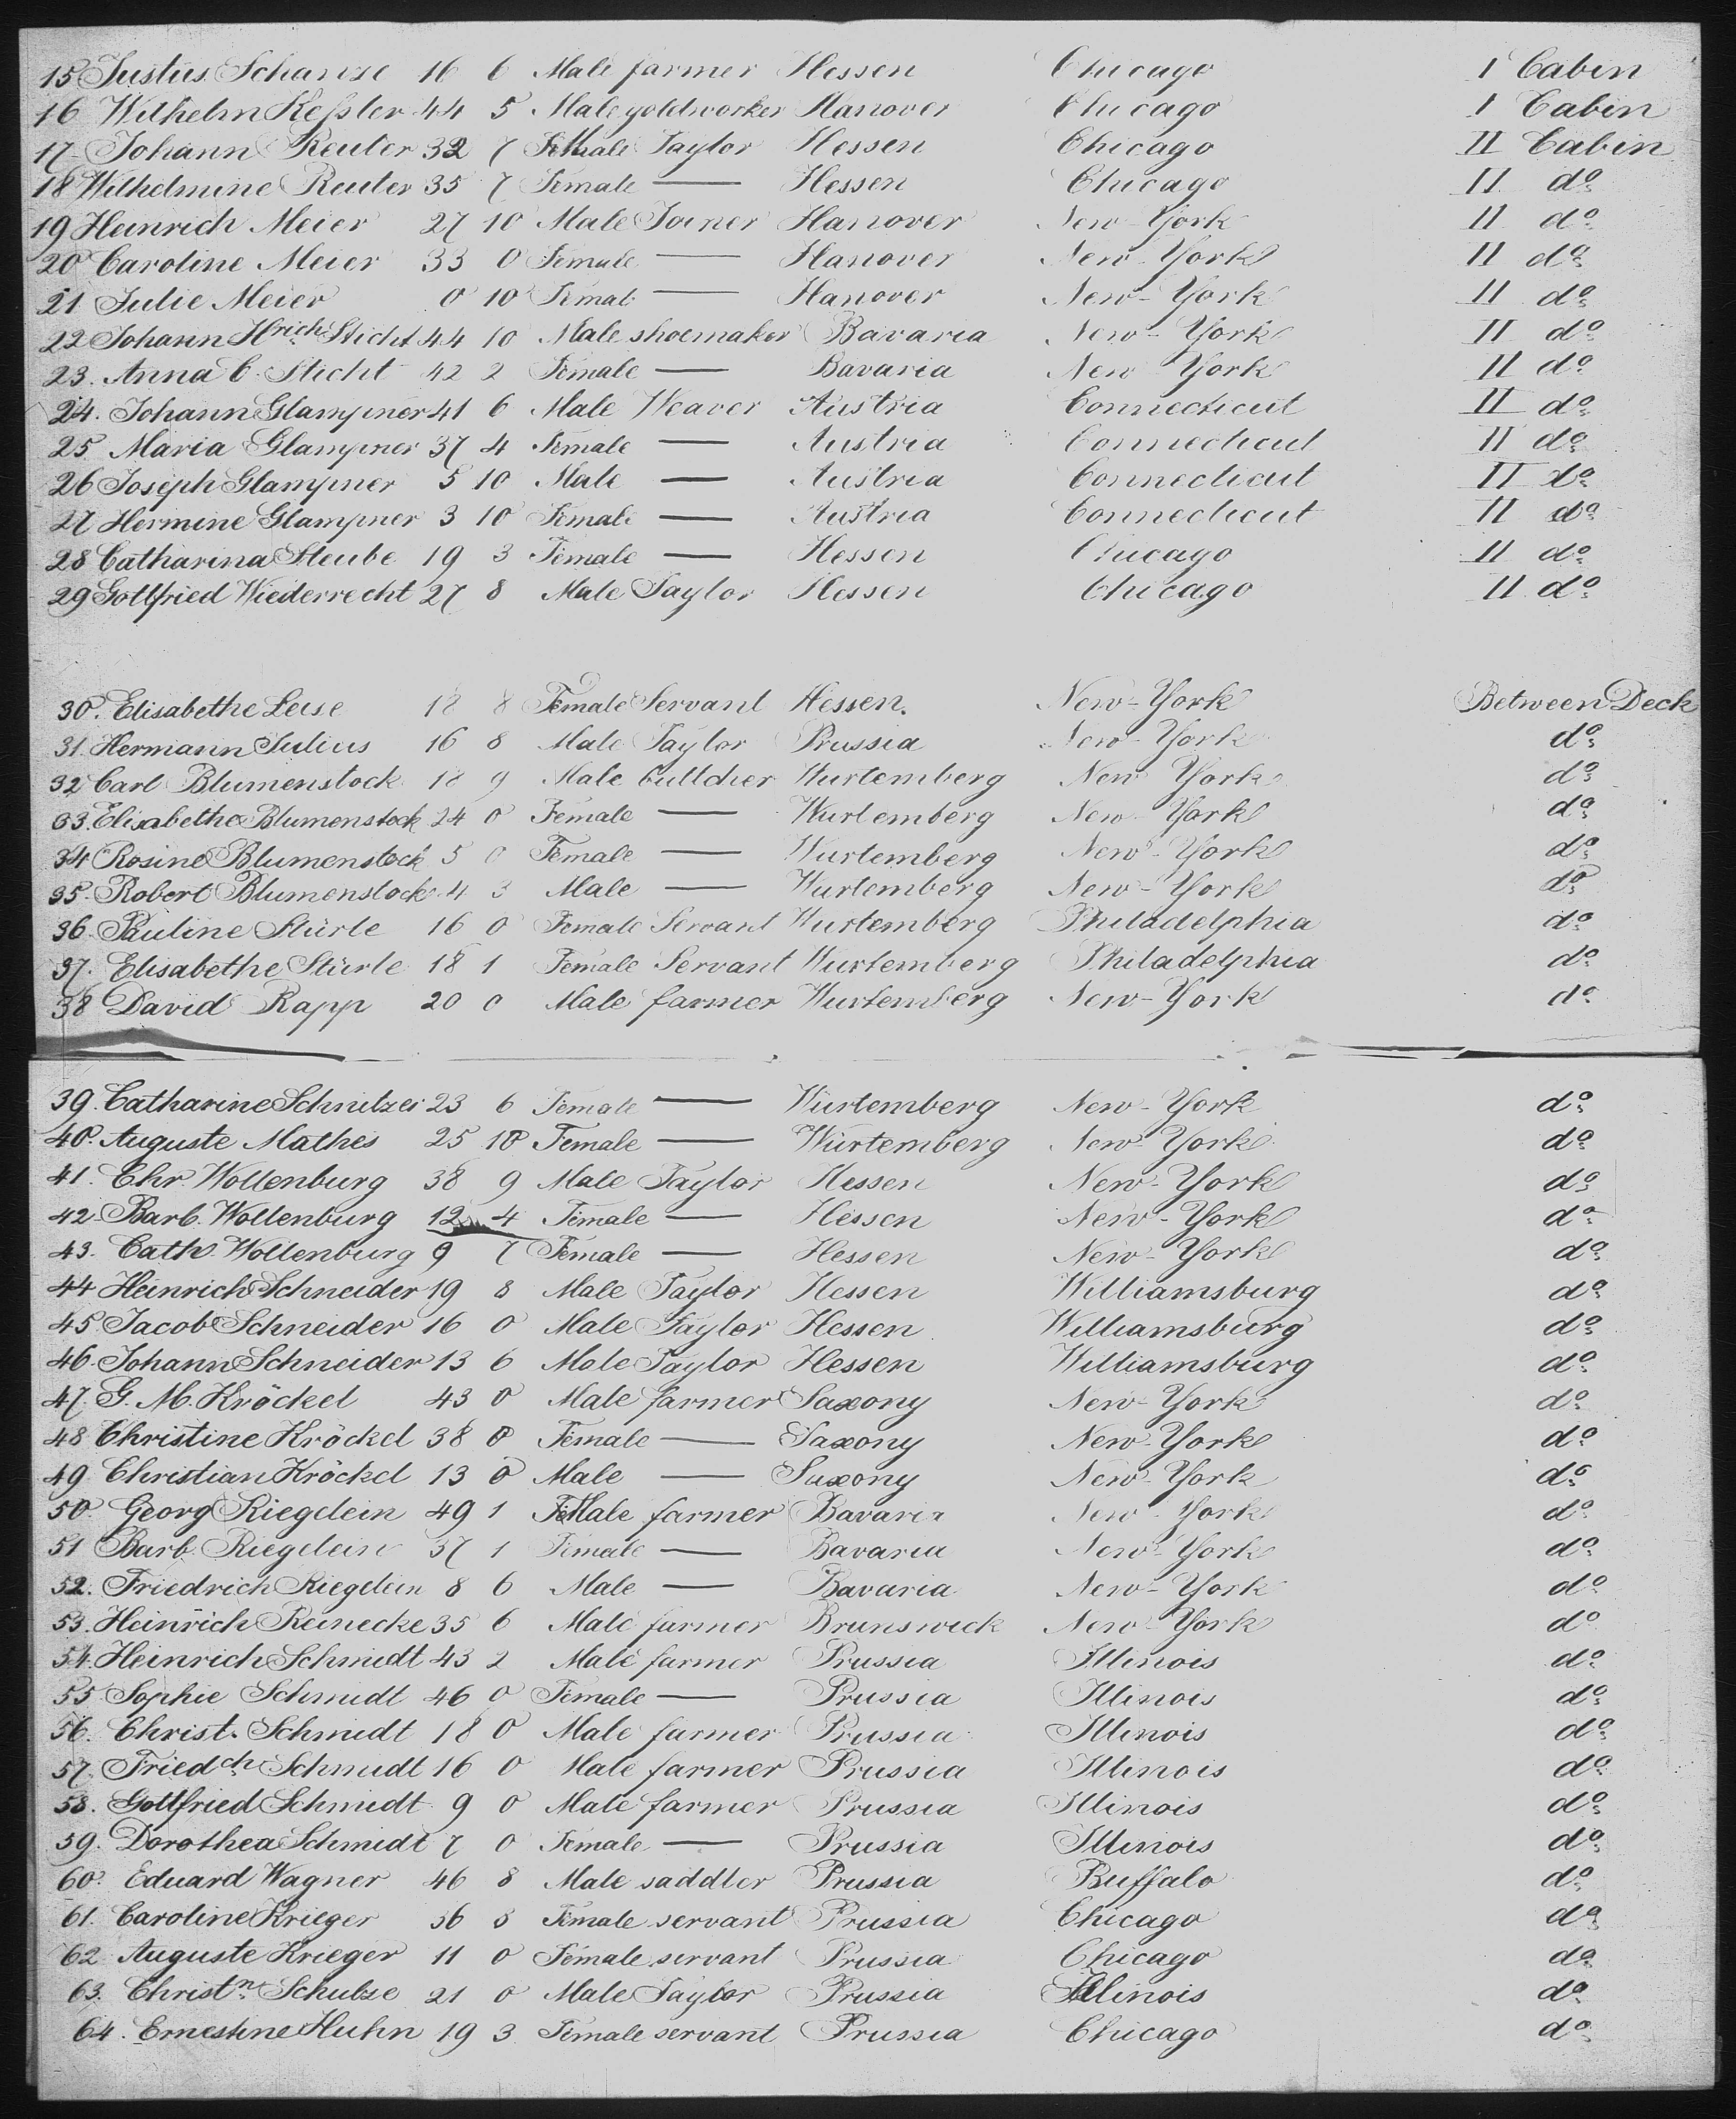 15 Justus Schanze 16 6 Male farmer Hessen Chicago I Cabin
16 Wilhelm Keſsler 44 5 Male goldworker Hanover Chicago I Cabin
17 Johann Reuter 32 7 Male Taylor Hessen Chicago II Cabin
18 Wilhelmine Reuter 35 7 Female — Hessen Chicago II do
19 Heinrich Meier 27 10 Male Joiner Hanover New-York II do
20 Caroline Meier 33 0 Female — Hanover New-York II do
21 Julie Meier 0 10 Female — Hanover New-York II do
22 Johann Hrich Sticht 44 10 Male shoemaker Bavaria New-York II do
23. Anna C. Sticht 42 2 Female — Bavaria New York II do
24. Johann Glampner 41 6 Male Weaver Austria Connecticut II do
25 Maria Glampner 37 4 Female — Austria Connecticut II do
26 Joseph Glampner 5 10 Male — Austria Connecticut II do
27 Hermine Glampner 3 10 Female — Austria Connecticut II do
28 Catharina Steube 19 3 Female — Hessen Chicago II do
29 Gottfried Wiederrecht 27 8 Male Taylor Hessen Chicago II do
30. Elisabethe Leise 18 8 Female Servant Hessen. New-York Between Deck
31. Hermann Julius 16 8 Male Taylor Prussia New-York do
32 Carl Blumenstock 18 9 Male buttcher Wurtemberg New York do
33. Elisabethe Blumenstock 24 0 Female — Wurtemberg New York do
34 Rosine Blumenstock 5 0 Female — Wurtemberg New-York do
35. Robert Blumenstock 4 3 Male — Wurtemberg New-York do
36. Pauline Stürle 16 0 Female Servant Wurtemberg Philadelphia do
37. Elisabethe Stürle 18 1 Female Servant Wurtemberg Philadelphia do
38 David Rapp 20 0 Male farmer Wurtemberg New-York do
39. Catharine Schnitzer 23 6 Female — Würtemberg New-York do
40. Auguste Mathes 25 10 Female — Würtemberg New-York do
41. Chr. Wollenburg 38 9 Male Taylor Hessen New-York do
42 Barb. Wollenburg 12 4 Female — Hessen New-York do
43. Cath. Wollenburg 9 7 Female — Hessen New-York do
44 Heinrich Schneider 19 8 Male Taylor Hessen Williamsburg do
45 Jacob Schneider 16 0 Male Taylor Hessen Williamsburg do
46. Johann Schneider 13 6 Male Taylor Hessen Williamsburg do
47. G. M. Kröckel 43 0 Male farmer Saxony New-York do
48 Christine Kröckel 38 0 Female — Saxony New-York do
49 Christian Kröckel 13 0 Male — Saxony New-York do
50. Georg Riegelein 49 1 Male farmer Bavaria New-York do
51 Barb. Riegelein 37 1 Female — Bavaria New-York do
52. Friedrich Riegelein 8 6 Male — Bavaria New-York do
53. Heinrich Reinecke 35 6 Male farmer Brunswick New-York do
54. Heinrich Schmidt 43 2 Male farmer Prussia Illinois do
55 Sophie Schmidt 46 0 Female — Prussia Illinois do
56. Christ. Schmidt 18 0 Male farmer Prussia Illinois do
57. Friedch Schmidt 16 0 Male farmer Prussia Illinois do
58. Gottfried Schmidt 9 0 Male farmer Prussia Illinois do
59. Dorothea Schmidt 7 0 Female — Prussia Illinois do
60. Eduard Wagner 46 8 Male saddler Prussia Buffalo do
61. Caroline Krieger 36 3 Female servant Prussia Chicago do
62 Auguste Krieger 11 0 Female servant Prussia Chicago do
63. Christn Schulze 21 0 Male Taylor Prussia Illinois do
64. Ernestine Huhn 19 3 Female servant Prussia Chicago do